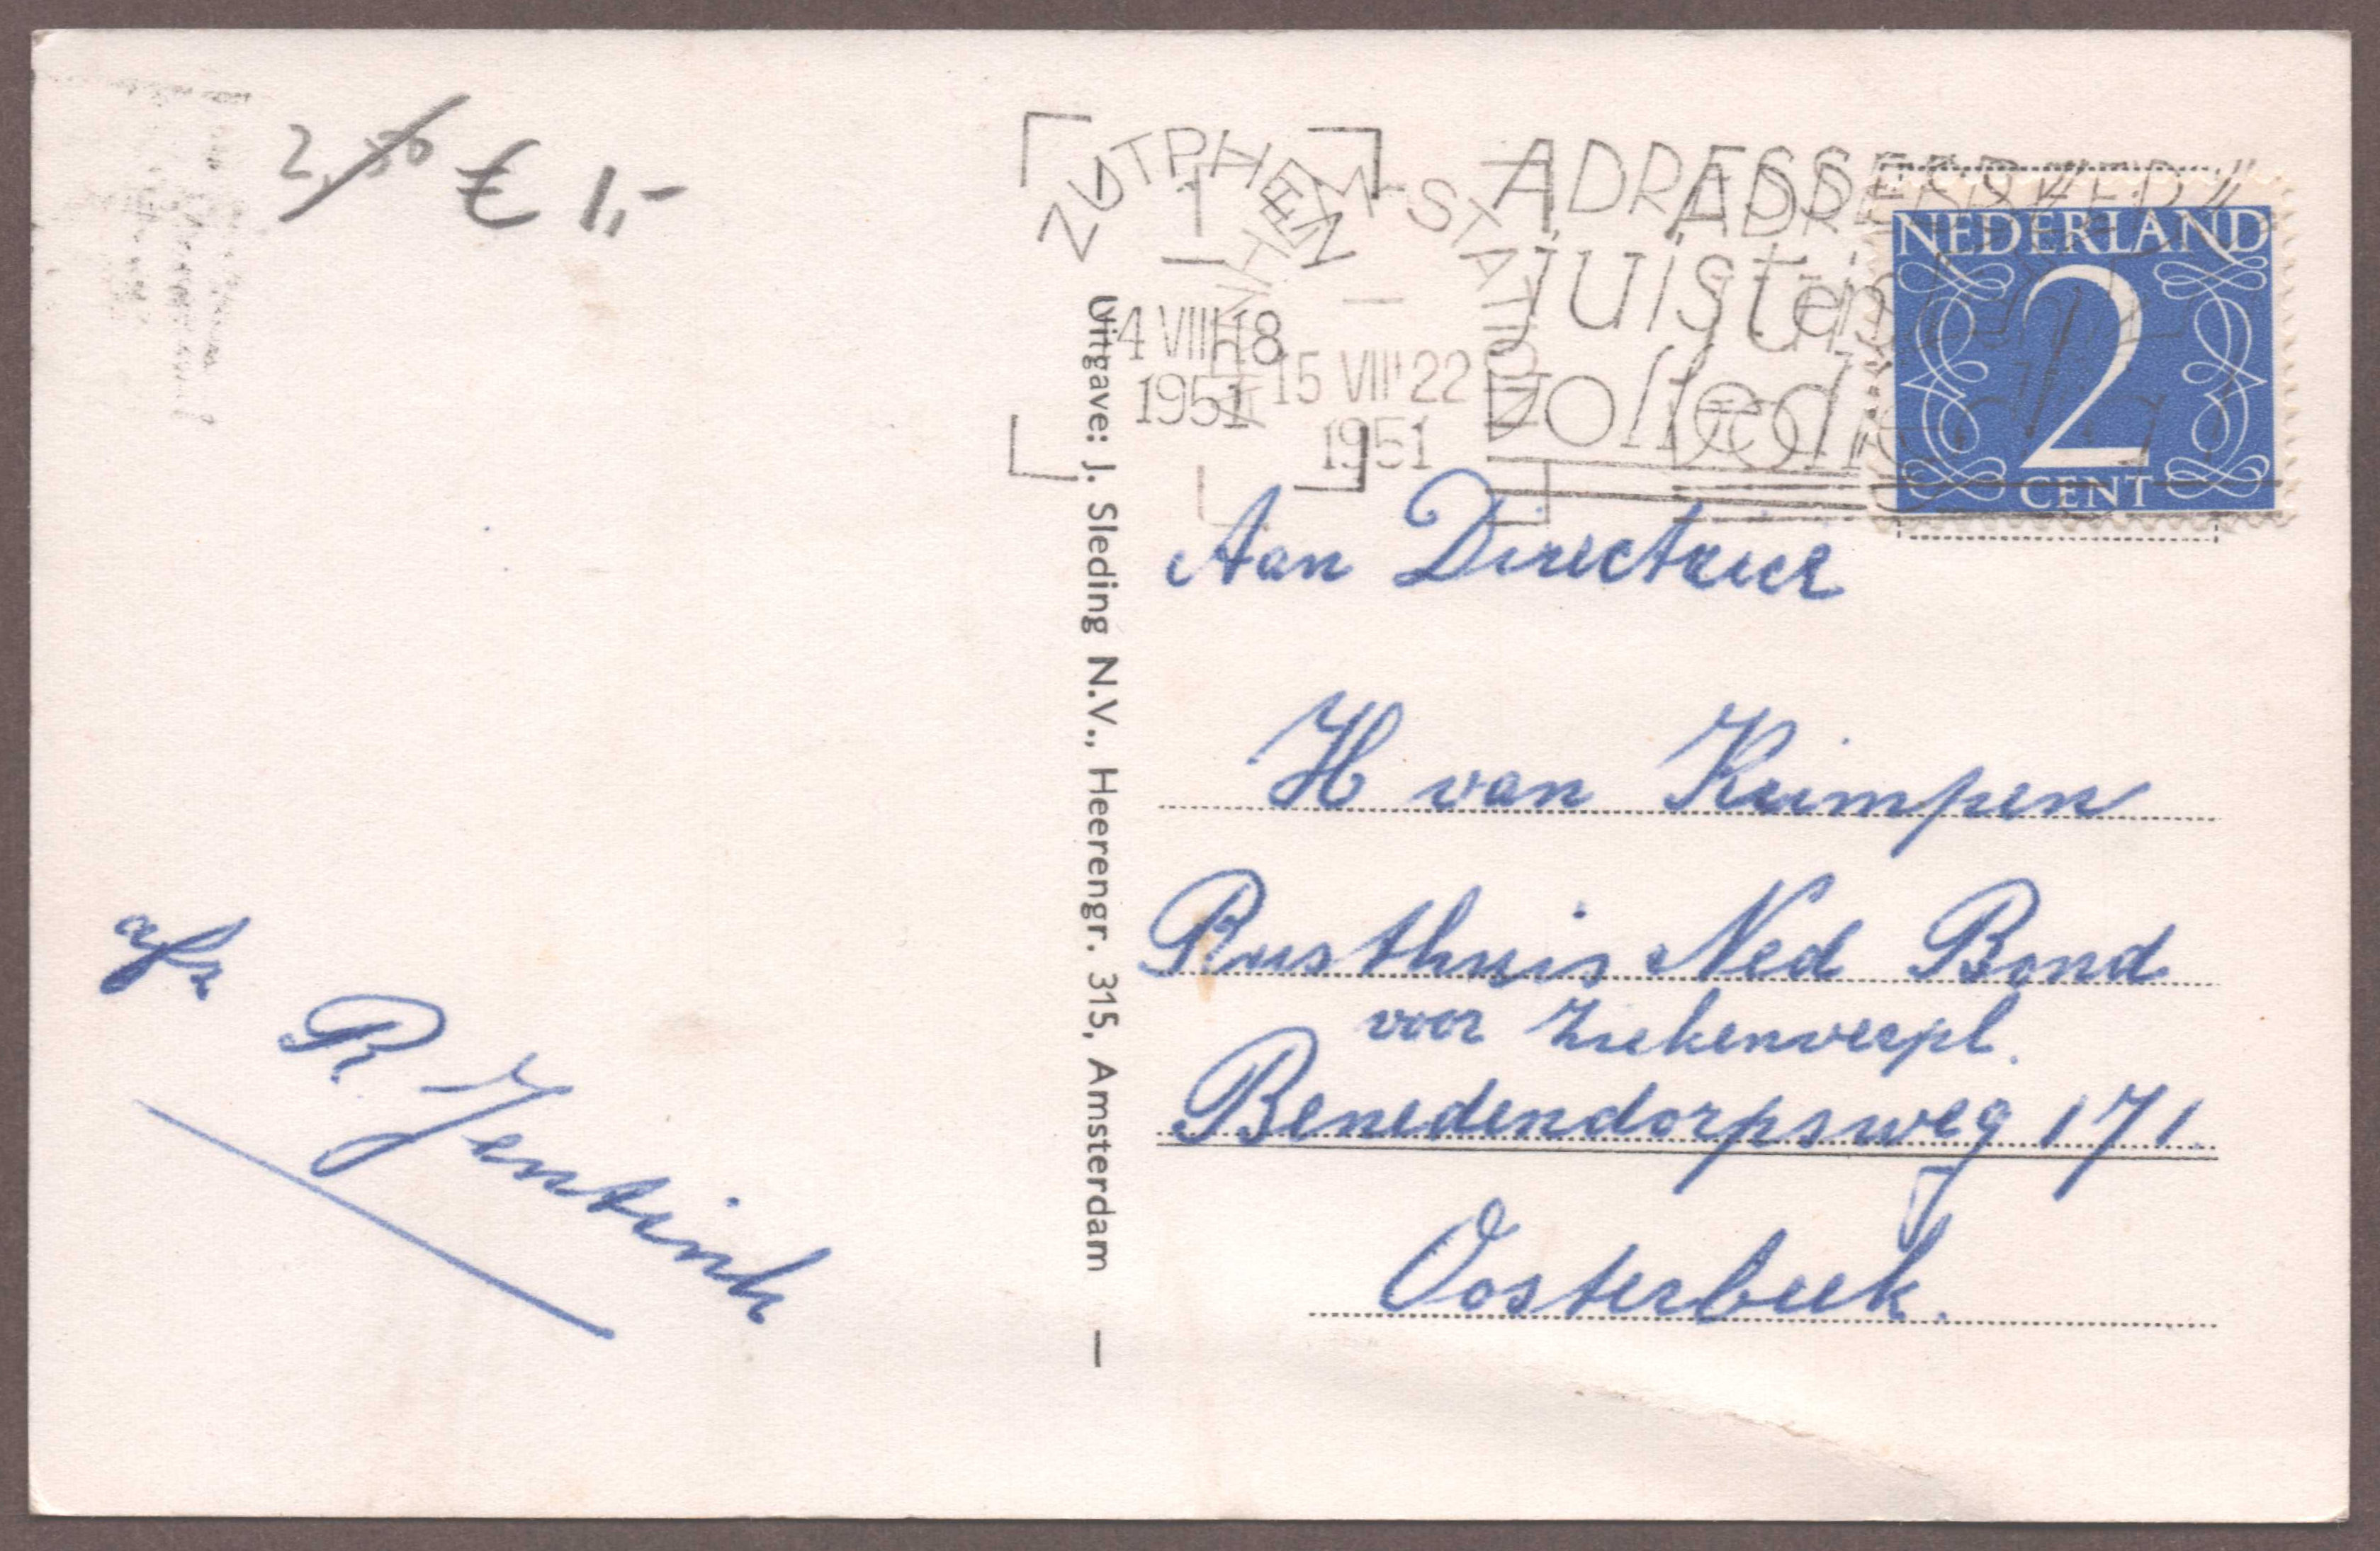 2,50 € 1,-
ZUTPHEN
4 VIII 18
1951
ARNHEM-STATION
15 VIII 22
1951
ADRESSEER
juist en
volledig
NEDERLAND
2
CENT
Uitgave: J. Sleding N.V., Heerengr. 315, Amsterdam
Aan Directrice
H van Krimpen
Rusthuis Ned Bond
voor Ziekenverpl.
Benedendorpsweg 171.
Oosterbeek.
afz
R Jentink